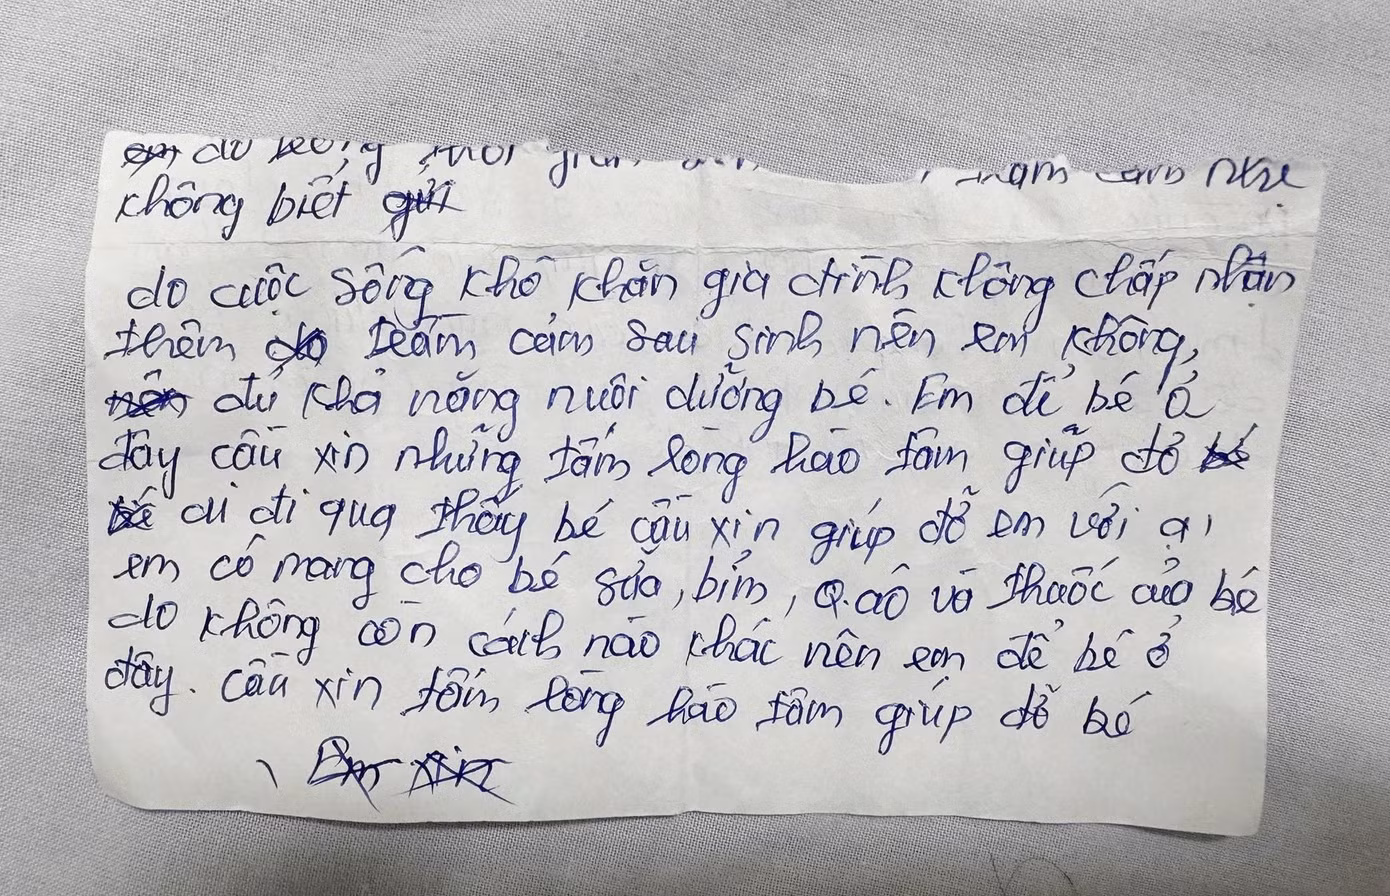 do trong thời gian
không biết gửi
do cuộc sống khó khăn gia đình không chấp nhận
thêm do trầm cảm sau sinh nên em không,
nên đủ khả năng nuôi dưỡng bé. Em để bé ở
đây cầu xin những tấm lòng hảo tâm giúp đỡ bé
bé ai đi qua thấy bé cầu xin giúp đỡ em với ạ
em có mang cho bé sữa, bỉm, Q.áo và thuốc của bé
do không còn cách nào khác nên em để bé ở
đây. cầu xin tấm lòng hảo tâm giúp đỡ bé
Em xin